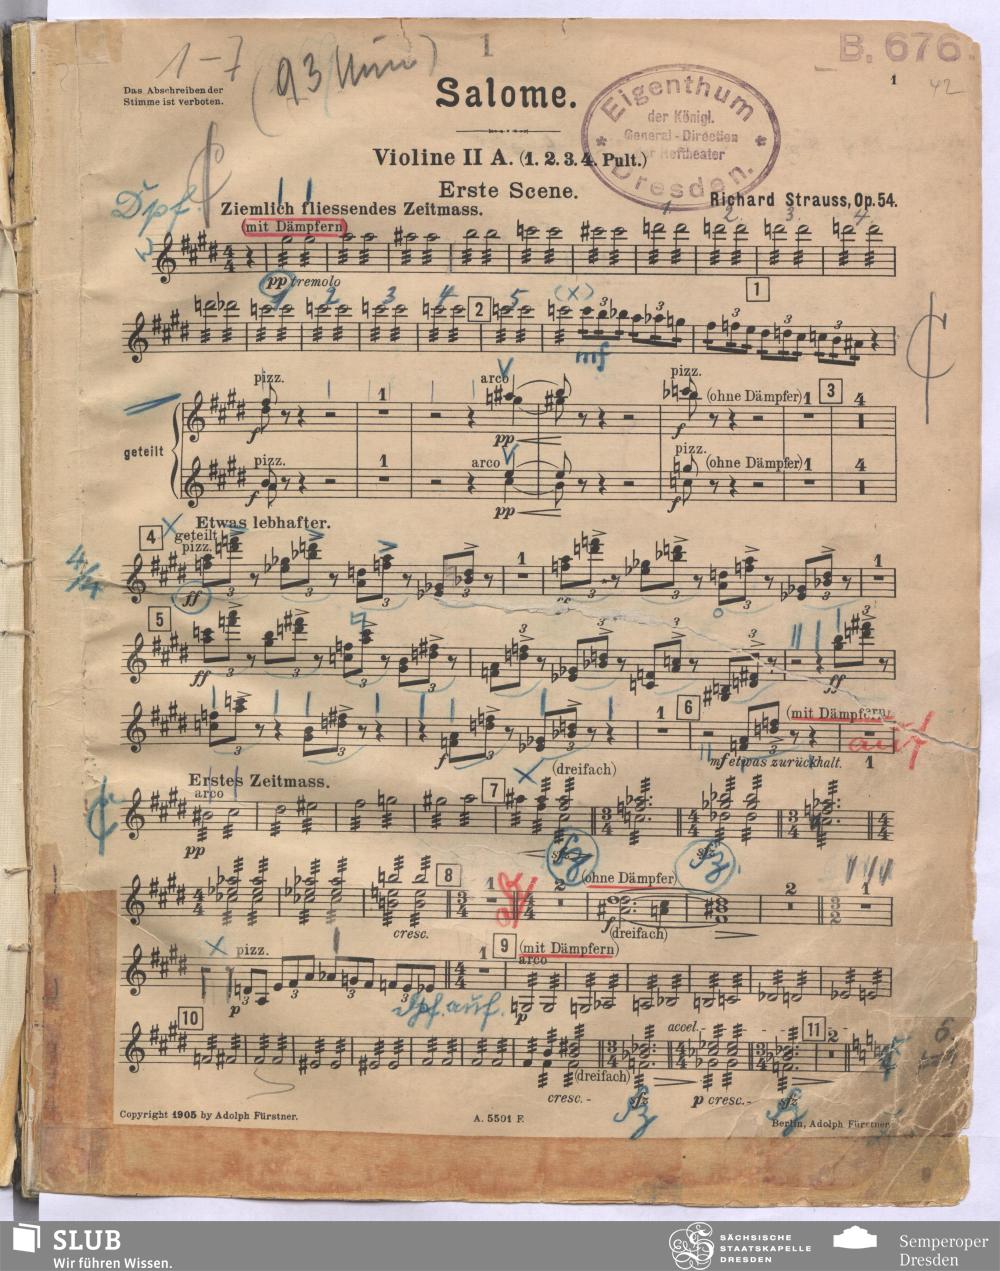 1-7
1
B. 676.
1
42
Das Abschreiben der
Stimme ist verboten.
Salome.
Eigenthum
der Königl.
General-Direction
der Hoftheater
Dresden.
Violine II A. (1. 2. 3. 4. Pult.)
Erste Scene.
Richard Strauss, Op. 54.
Dpf.
Ziemlich fliessendes Zeitmass.
mit Dämpfern
1 2. 3. 4
pp tremolo
1 2 3 4 5 (x)
2 1
3 3 3 3
mf
pizz. 1 arco pizz. (ohne Dämpfer) 1 3 4
f pp f
geteilt
pizz. 1 arco pizz. (ohne Dämpfer) 1 4
f pp f
Etwas lebhafter.
4 geteilt
pizz.
4/4
ff 3 3 1 3 3 1
5
ff 3 3 3 3 3 3 ff 3
6 (mit Dämpfern)
3 3 f 3 3 1 3 1
mf etwas zurückhalt.
auf
Erstes Zeitmass.
arco 7 (dreifach)
pp sfz sfz
8 1 2 (ohne Dämpfer) 1 2 1
cresc. f (dreifach)
pizz. 1 9 (mit Dämpfern)
arco
p 3 3 3 3 p
Dpf. auf.
10 accel. 11 2
(dreifach)
cresc. sfz p cresc. sfz
Copyright 1905 by Adolph Fürstner.
A. 5501 F.
Berlin, Adolph Fürstner.
SLUB
Wir führen Wissen.
SÄCHSISCHE
STAATSKAPELLE
DRESDEN
Semperoper
Dresden